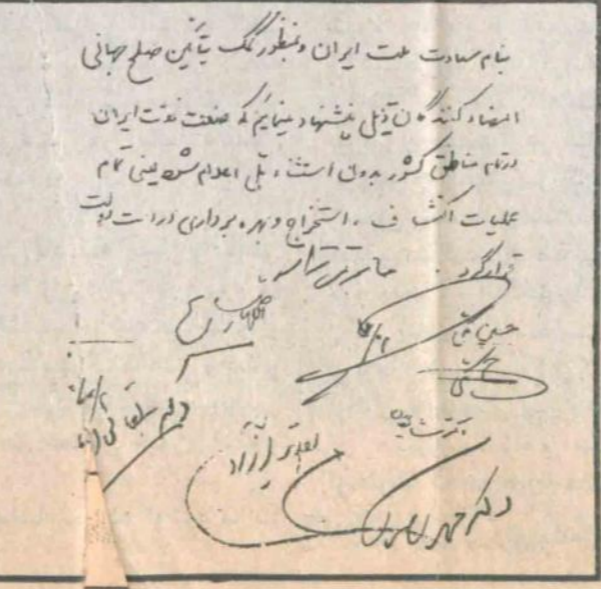 بنام سعادت ملت ایران و بمنظور کمک بتأمین صلح جهانی
امضاء کنندگان ذیل پیشنهاد مینمائیم که صنعت نفت ایران
در تمام مناطق کشور بدون استثناء ملی اعلام شود یعنی تمام
عملیات اکتشاف ، استخراج و بهره برداری در دست دولت
قرار گیرد
اللهیار صالح
حسین مکی
دکتر شایگان
دکتر بقائی
آزاد
دکتر مصدق